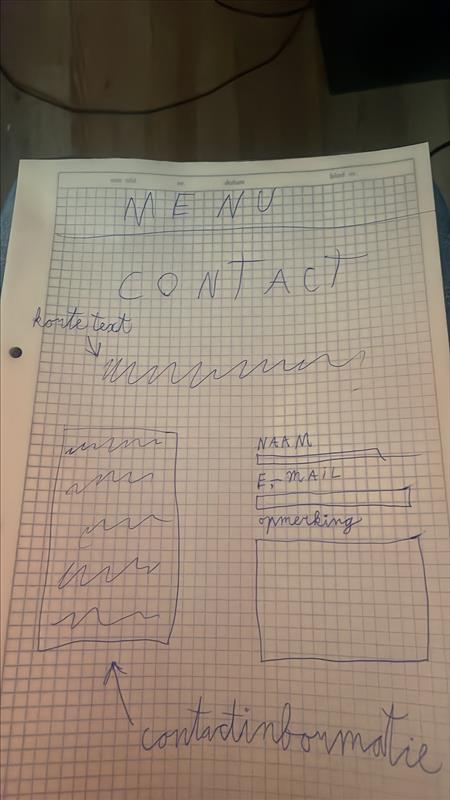 nr.
datum
blad nr.
MENU
CONTACT
korte text
NAAM
E-MAIL
opmerking
contactinformatie